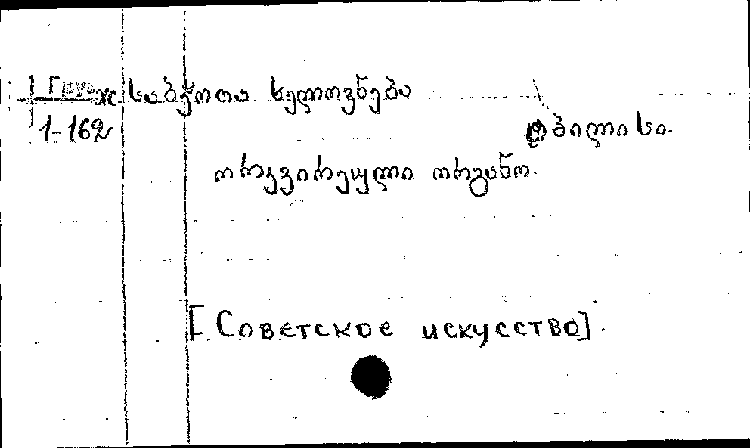 Груз
საბჭოთა ხელოვნება
1-162
თბილისი.
ორკვირეული ორგანო.
[Советское искусство]